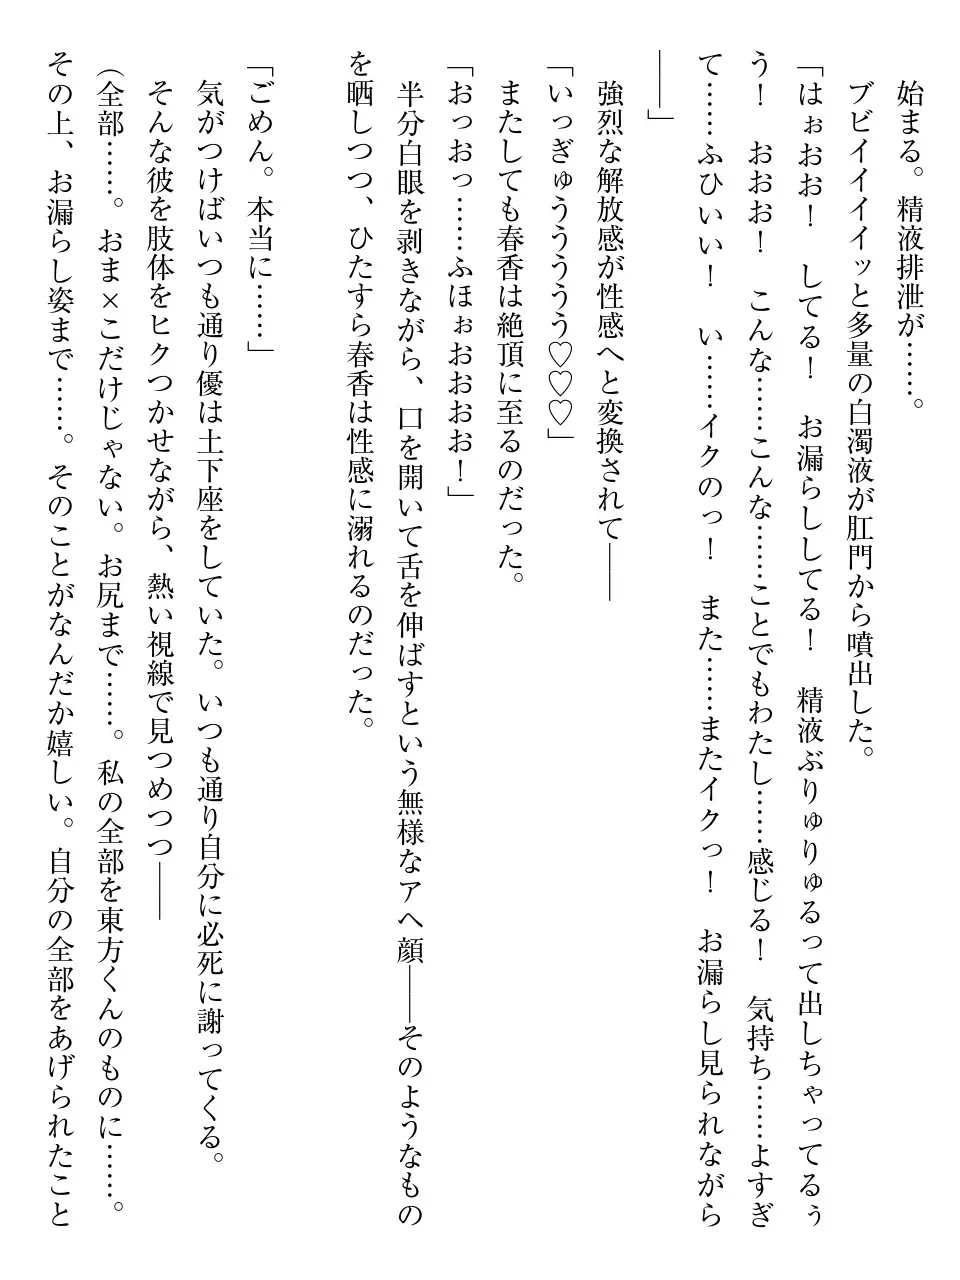 始まる。精液排泄が……。
ブビイイイイッと多量の白濁液が肛門から噴出した。
「はぉおお！　してる！　お漏らししてる！　精液ぶりゅりゅるって出しちゃってるぅ
う！　おおお！　こんな……こんな……ことでもわたし……感じる！　気持ち……よすぎ
て……ふひいい！　い……イクのっ！　また……またイクっ！　お漏らし見られながら
――」
強烈な解放感が性感へと変換されて――
「いっぎゅううううう♡♡♡」
またしても春香は絶頂に至るのだった。
「おっおっ……ふほぉおおおお！」
半分白眼を剥きながら、口を開いて舌を伸ばすという無様なアヘ顔――そのようなもの
を晒しつつ、ひたすら春香は性感に溺れるのだった。
「ごめん。本当に……」
気がつけばいつも通り優は土下座をしていた。いつも通り自分に必死に謝ってくる。
そんな彼を肢体をヒクつかせながら、熱い視線で見つめつつ――
（全部……。おま×こだけじゃない。お尻まで……。私の全部を東方くんのものに……。
その上、お漏らし姿まで……。そのことがなんだか嬉しい。自分の全部をあげられたこと